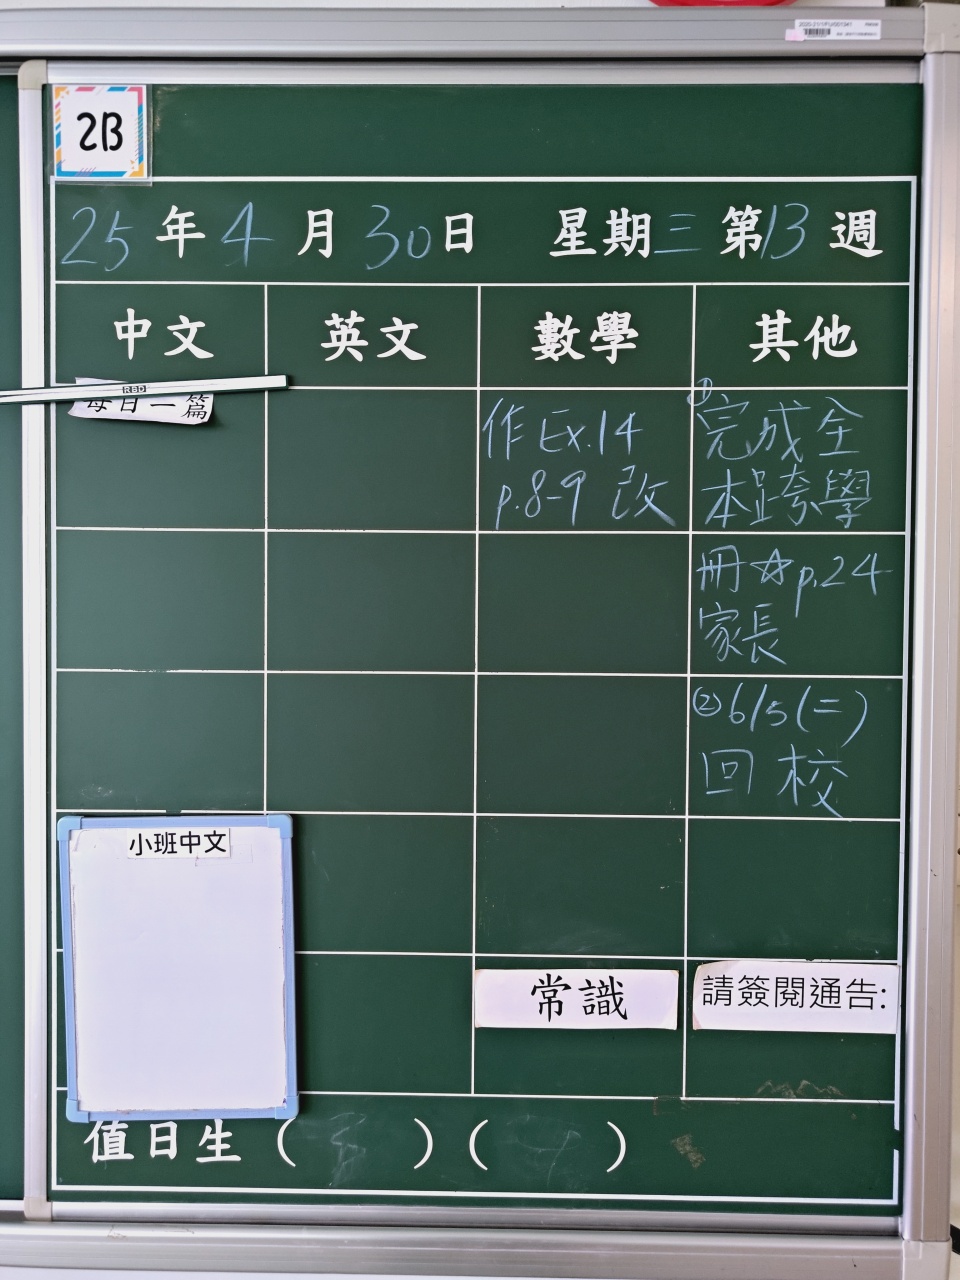 2B
25年4月30日 星期三 第13週
中文 英文 數學 其他
RBD
每日一篇
作Ex.14
p.8-9 改
①完成全
本跨學
冊☆p.24
家長
②6/5(二)
回校
小班中文
常識
請簽閱通告:
值日生 ( ) ( )